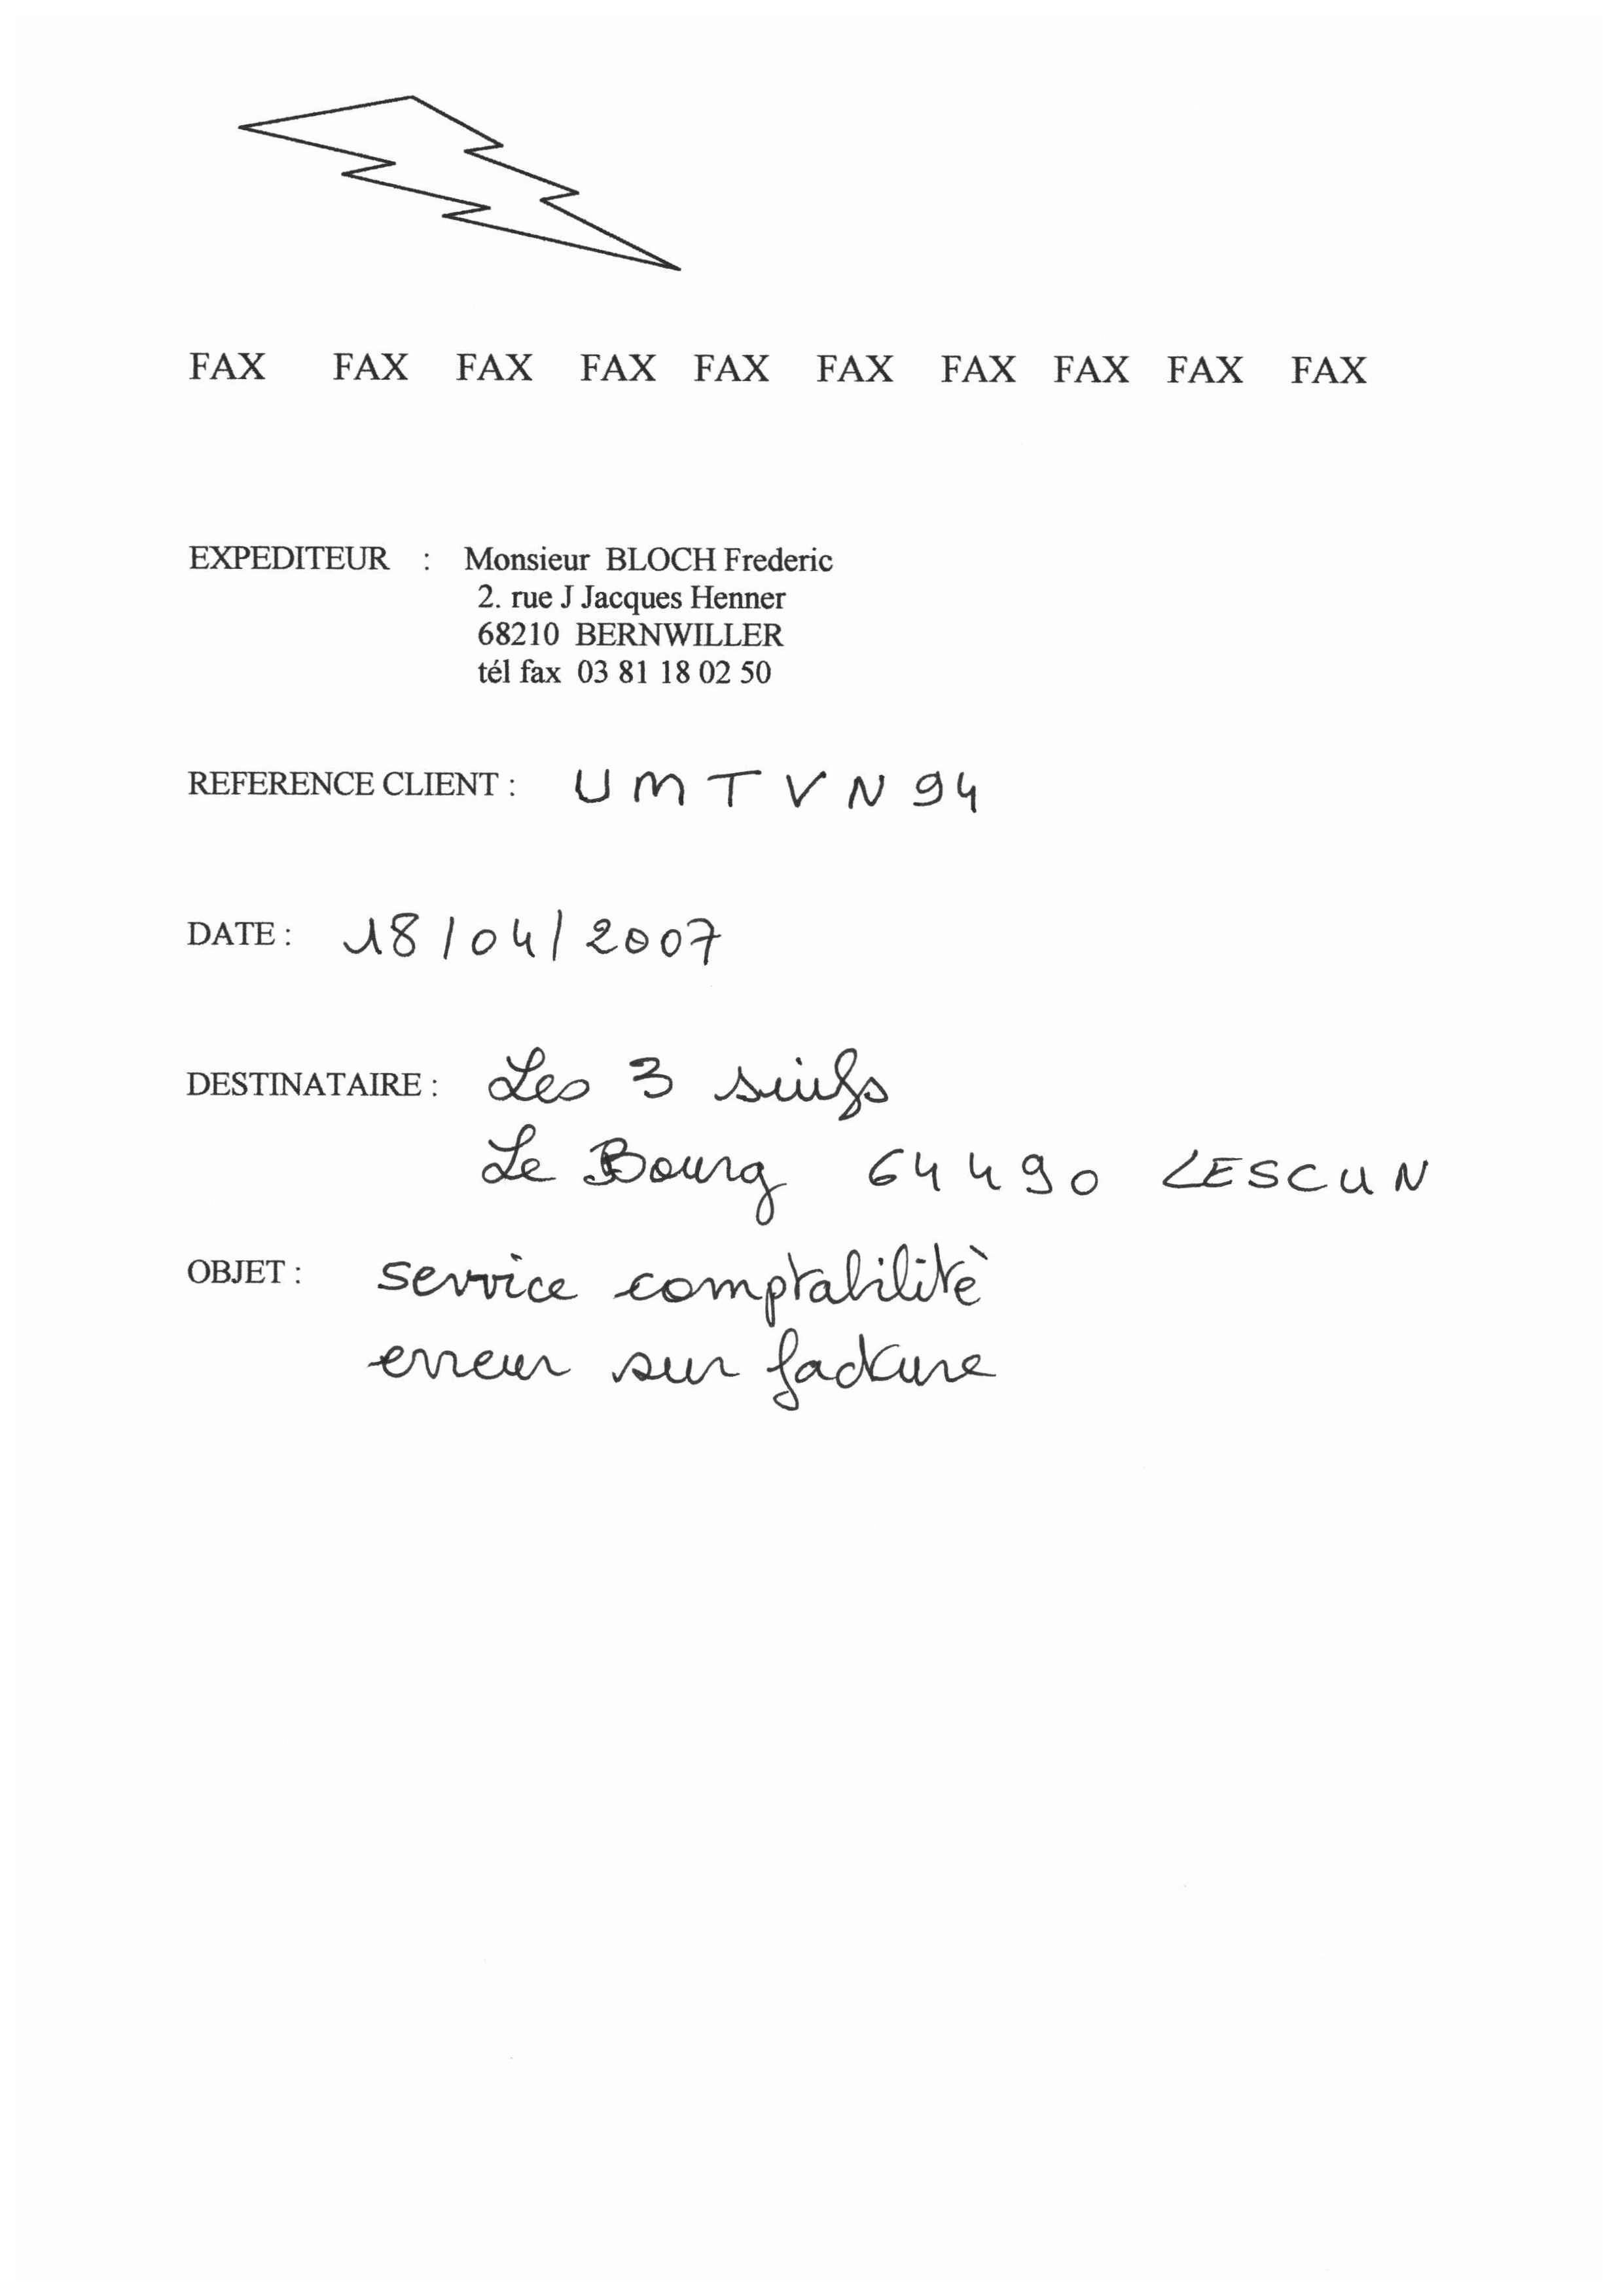 FAX FAX FAX FAX FAX FAX FAX FAX FAX FAX
EXPEDITEUR : Monsieur BLOCH Frederic
2. rue J Jacques Henner
68210 BERNWILLER
tél fax 03 81 18 02 50
REFERENCE CLIENT : UMTVN94
DATE : 18/04/2007
DESTINATAIRE : Les 3
Le Bourg 64490 LESCUN
OBJET : service comptabilité
erreur sur facture